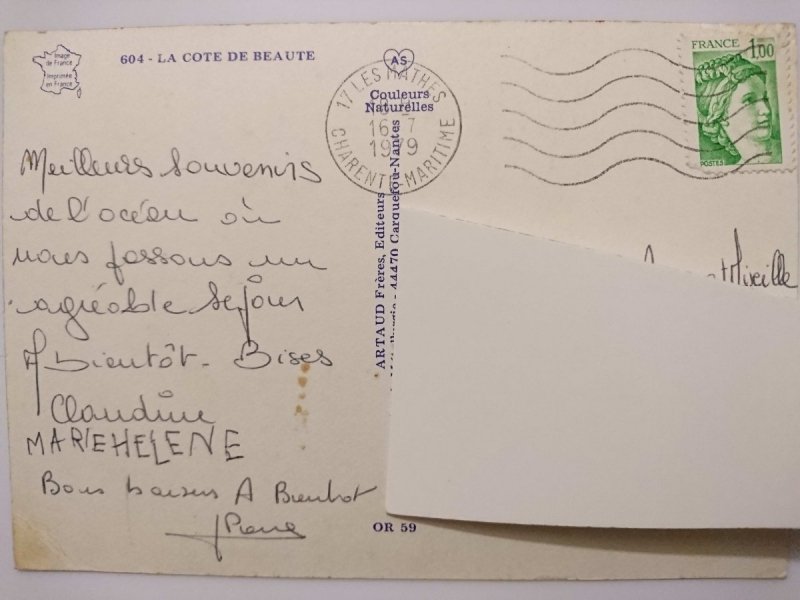 Image
de France
Imprimée
en France
604 - LA COTE DE BEAUTE
Meilleurs Souvenirs
de l'océan où
nous passons un
agréable séjour
A bientôt - Bises
Claudine
MARIE HELENE
Bons baisers A Bientot
AS
Couleurs
Naturelles
ARTAUD Frères, Editeurs
44470 Carquefou-Nantes
OR 59
17 LES MATHES
16-7
1979
CHARENTE-MARITIME
FRANCE 1,00
POSTES
Mireille